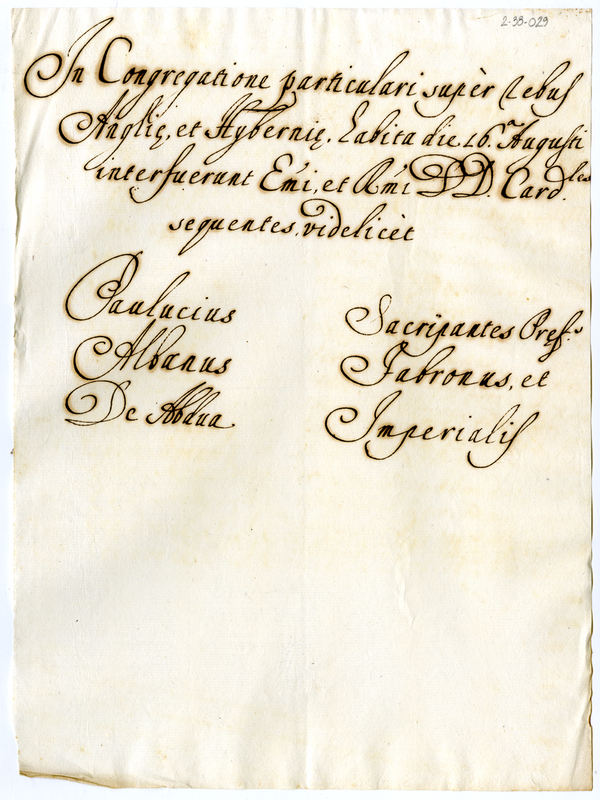 2-33-029
In Congregatione particulari supèr rebus
Anglię, et Hybernię, habita die 26. Augusti
interfuerunt Emi, et Rmi DD. Card.les
sequentes, videlicèt
Paulucius
Albanus
De Abdua
Sacripantes Pref.s
Fabronus, et
Imperialis